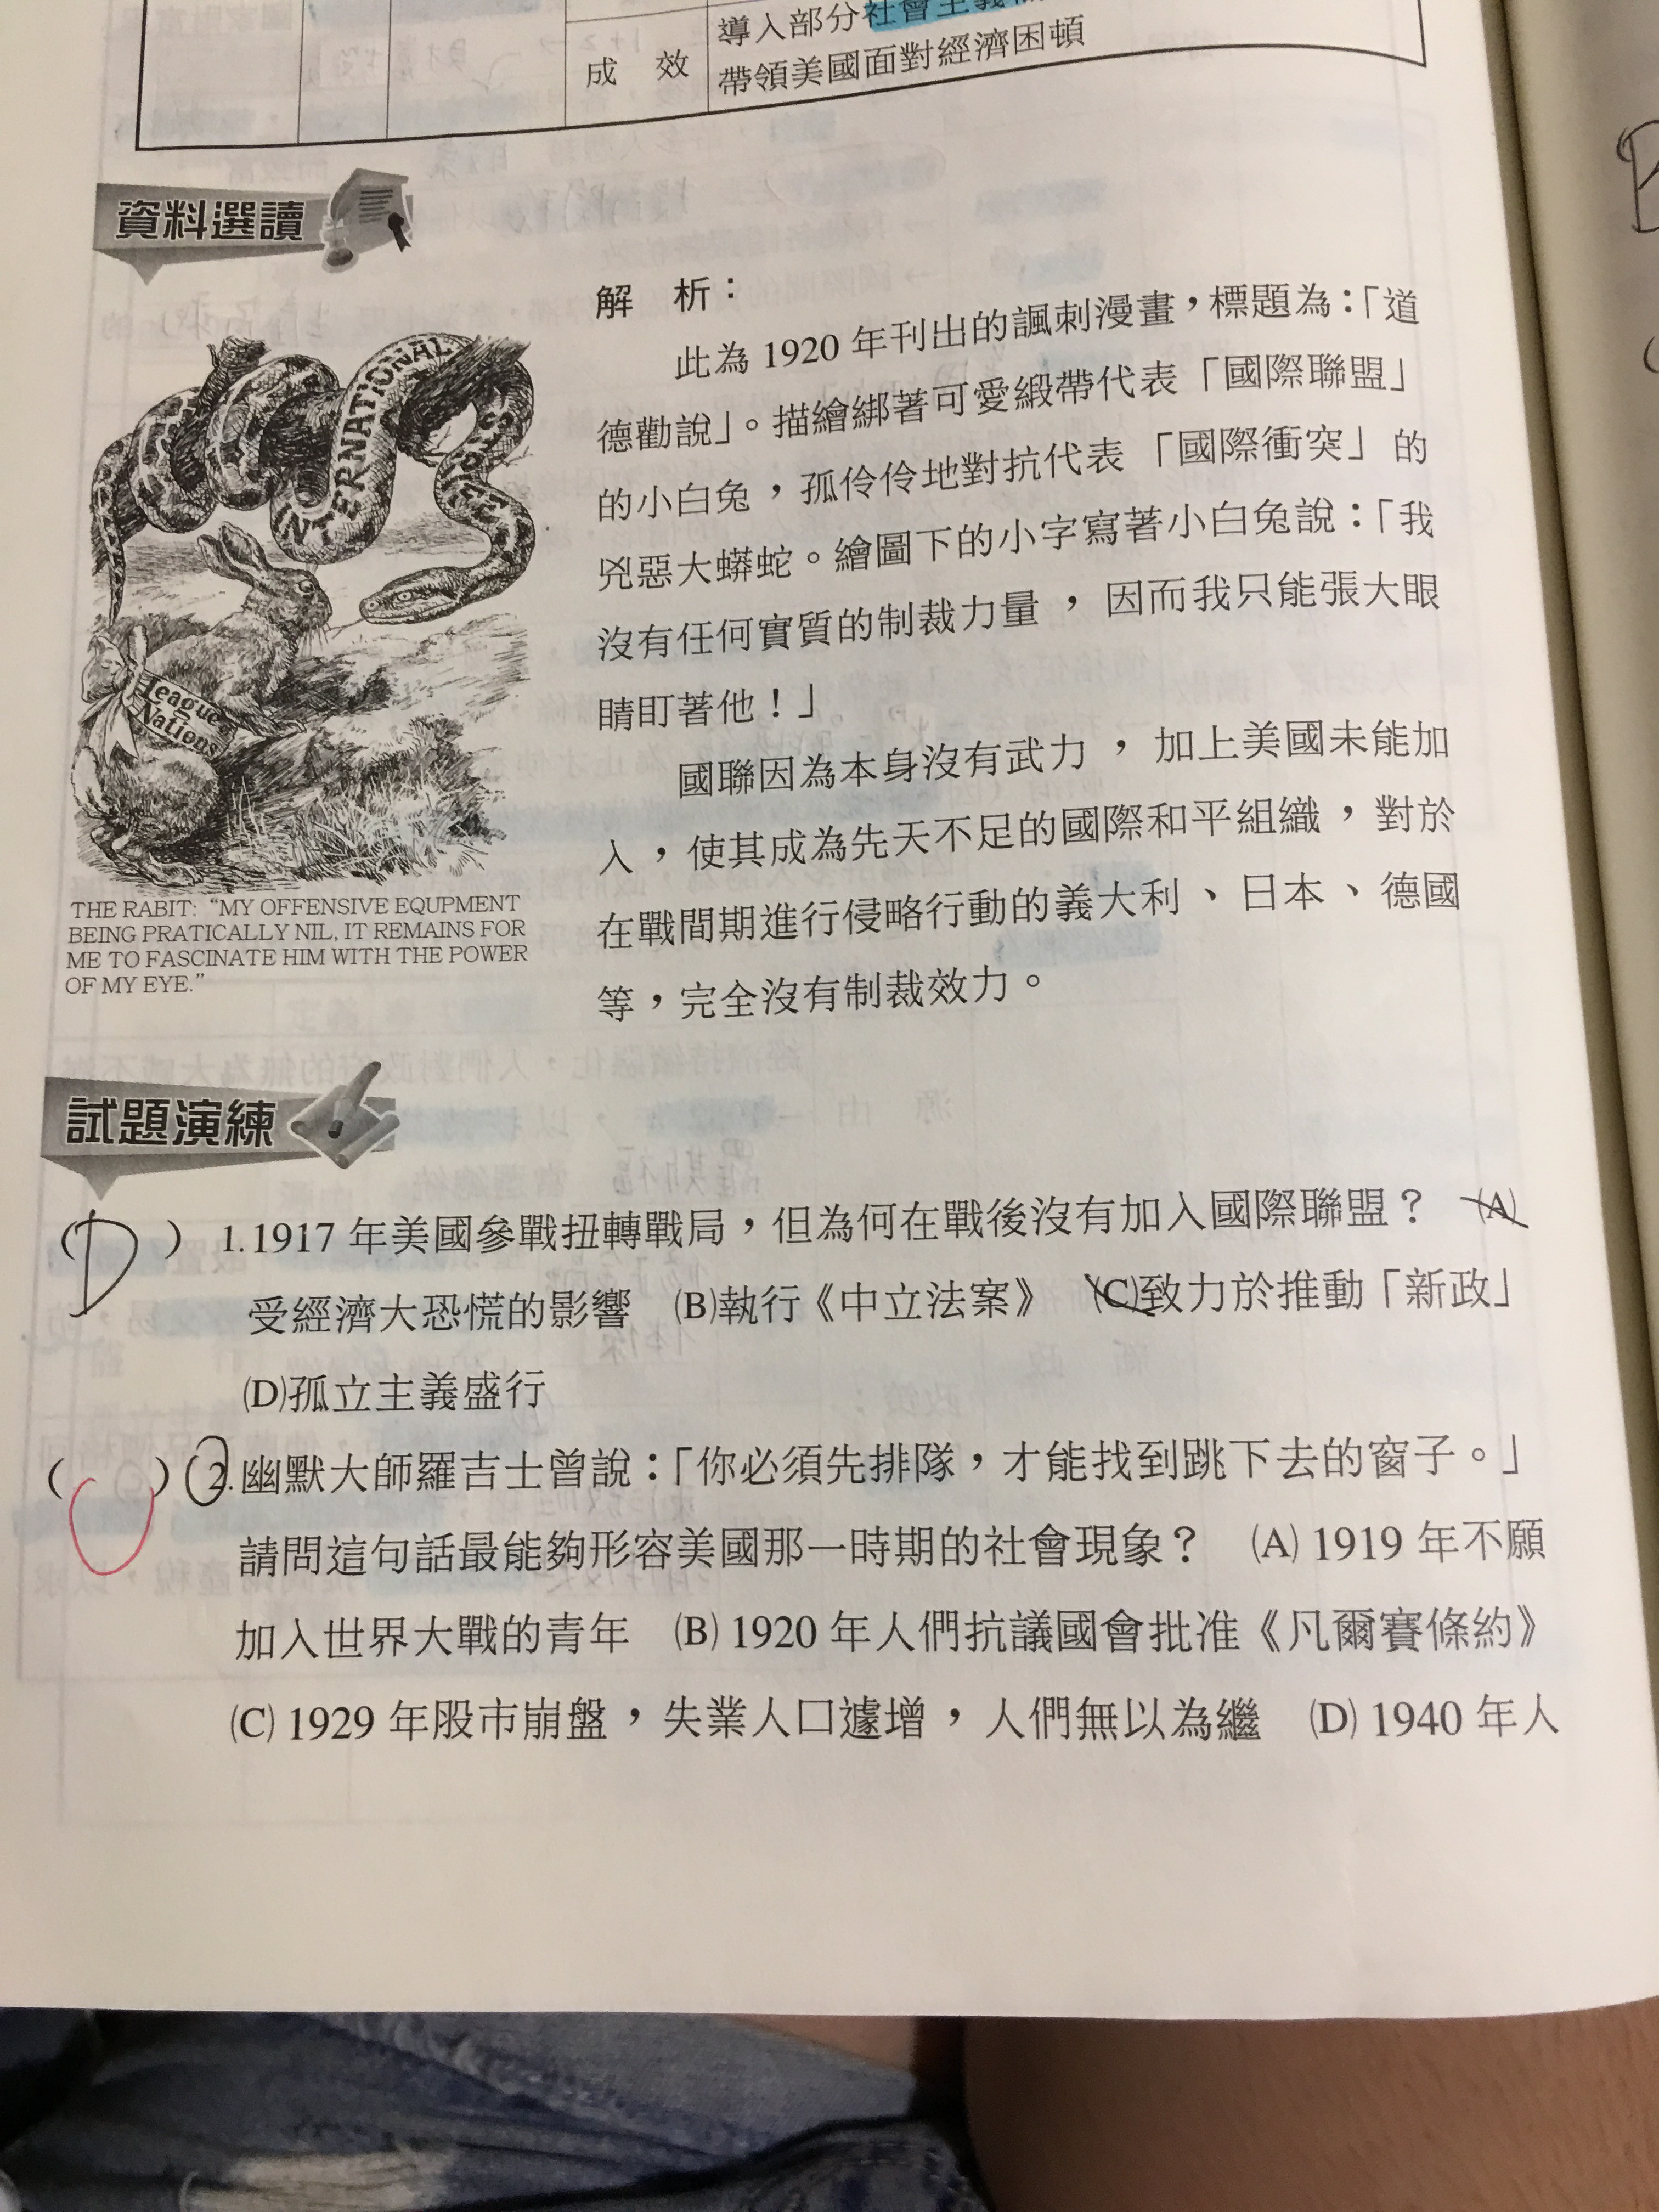 導入部分社會主義
成 效
帶領美國面對經濟困頓
資料選讀
INTERNATIONAL
League
Nations
THE RABIT: “MY OFFENSIVE EQUPMENT
BEING PRATICALLY NIL, IT REMAINS FOR
ME TO FASCINATE HIM WITH THE POWER
OF MY EYE.”
解 析：
此為 1920 年刊出的諷刺漫畫，標題為：「道
德勸說」。描繪綁著可愛緞帶代表「國際聯盟」
的小白兔，孤伶伶地對抗代表「國際衝突」的
兇惡大蟒蛇。繪圖下的小字寫著小白兔說：「我
沒有任何實質的制裁力量，因而我只能張大眼
睛盯著他！」
國聯因為本身沒有武力，加上美國未能加
入，使其成為先天不足的國際和平組織，對於
在戰間期進行侵略行動的義大利、日本、德國
等，完全沒有制裁效力。
試題演練
( D ) 1. 1917 年美國參戰扭轉戰局，但為何在戰後沒有加入國際聯盟？ (A)
受經濟大恐慌的影響 (B)執行《中立法案》 (C)致力於推動「新政」
(D)孤立主義盛行
( ) 2. 幽默大師羅吉士曾說：「你必須先排隊，才能找到跳下去的窗子。」
請問這句話最能夠形容美國那一時期的社會現象？ (A) 1919 年不願
加入世界大戰的青年 (B) 1920 年人們抗議國會批准《凡爾賽條約》
(C) 1929 年股市崩盤，失業人口遽增，人們無以為繼 (D) 1940 年人